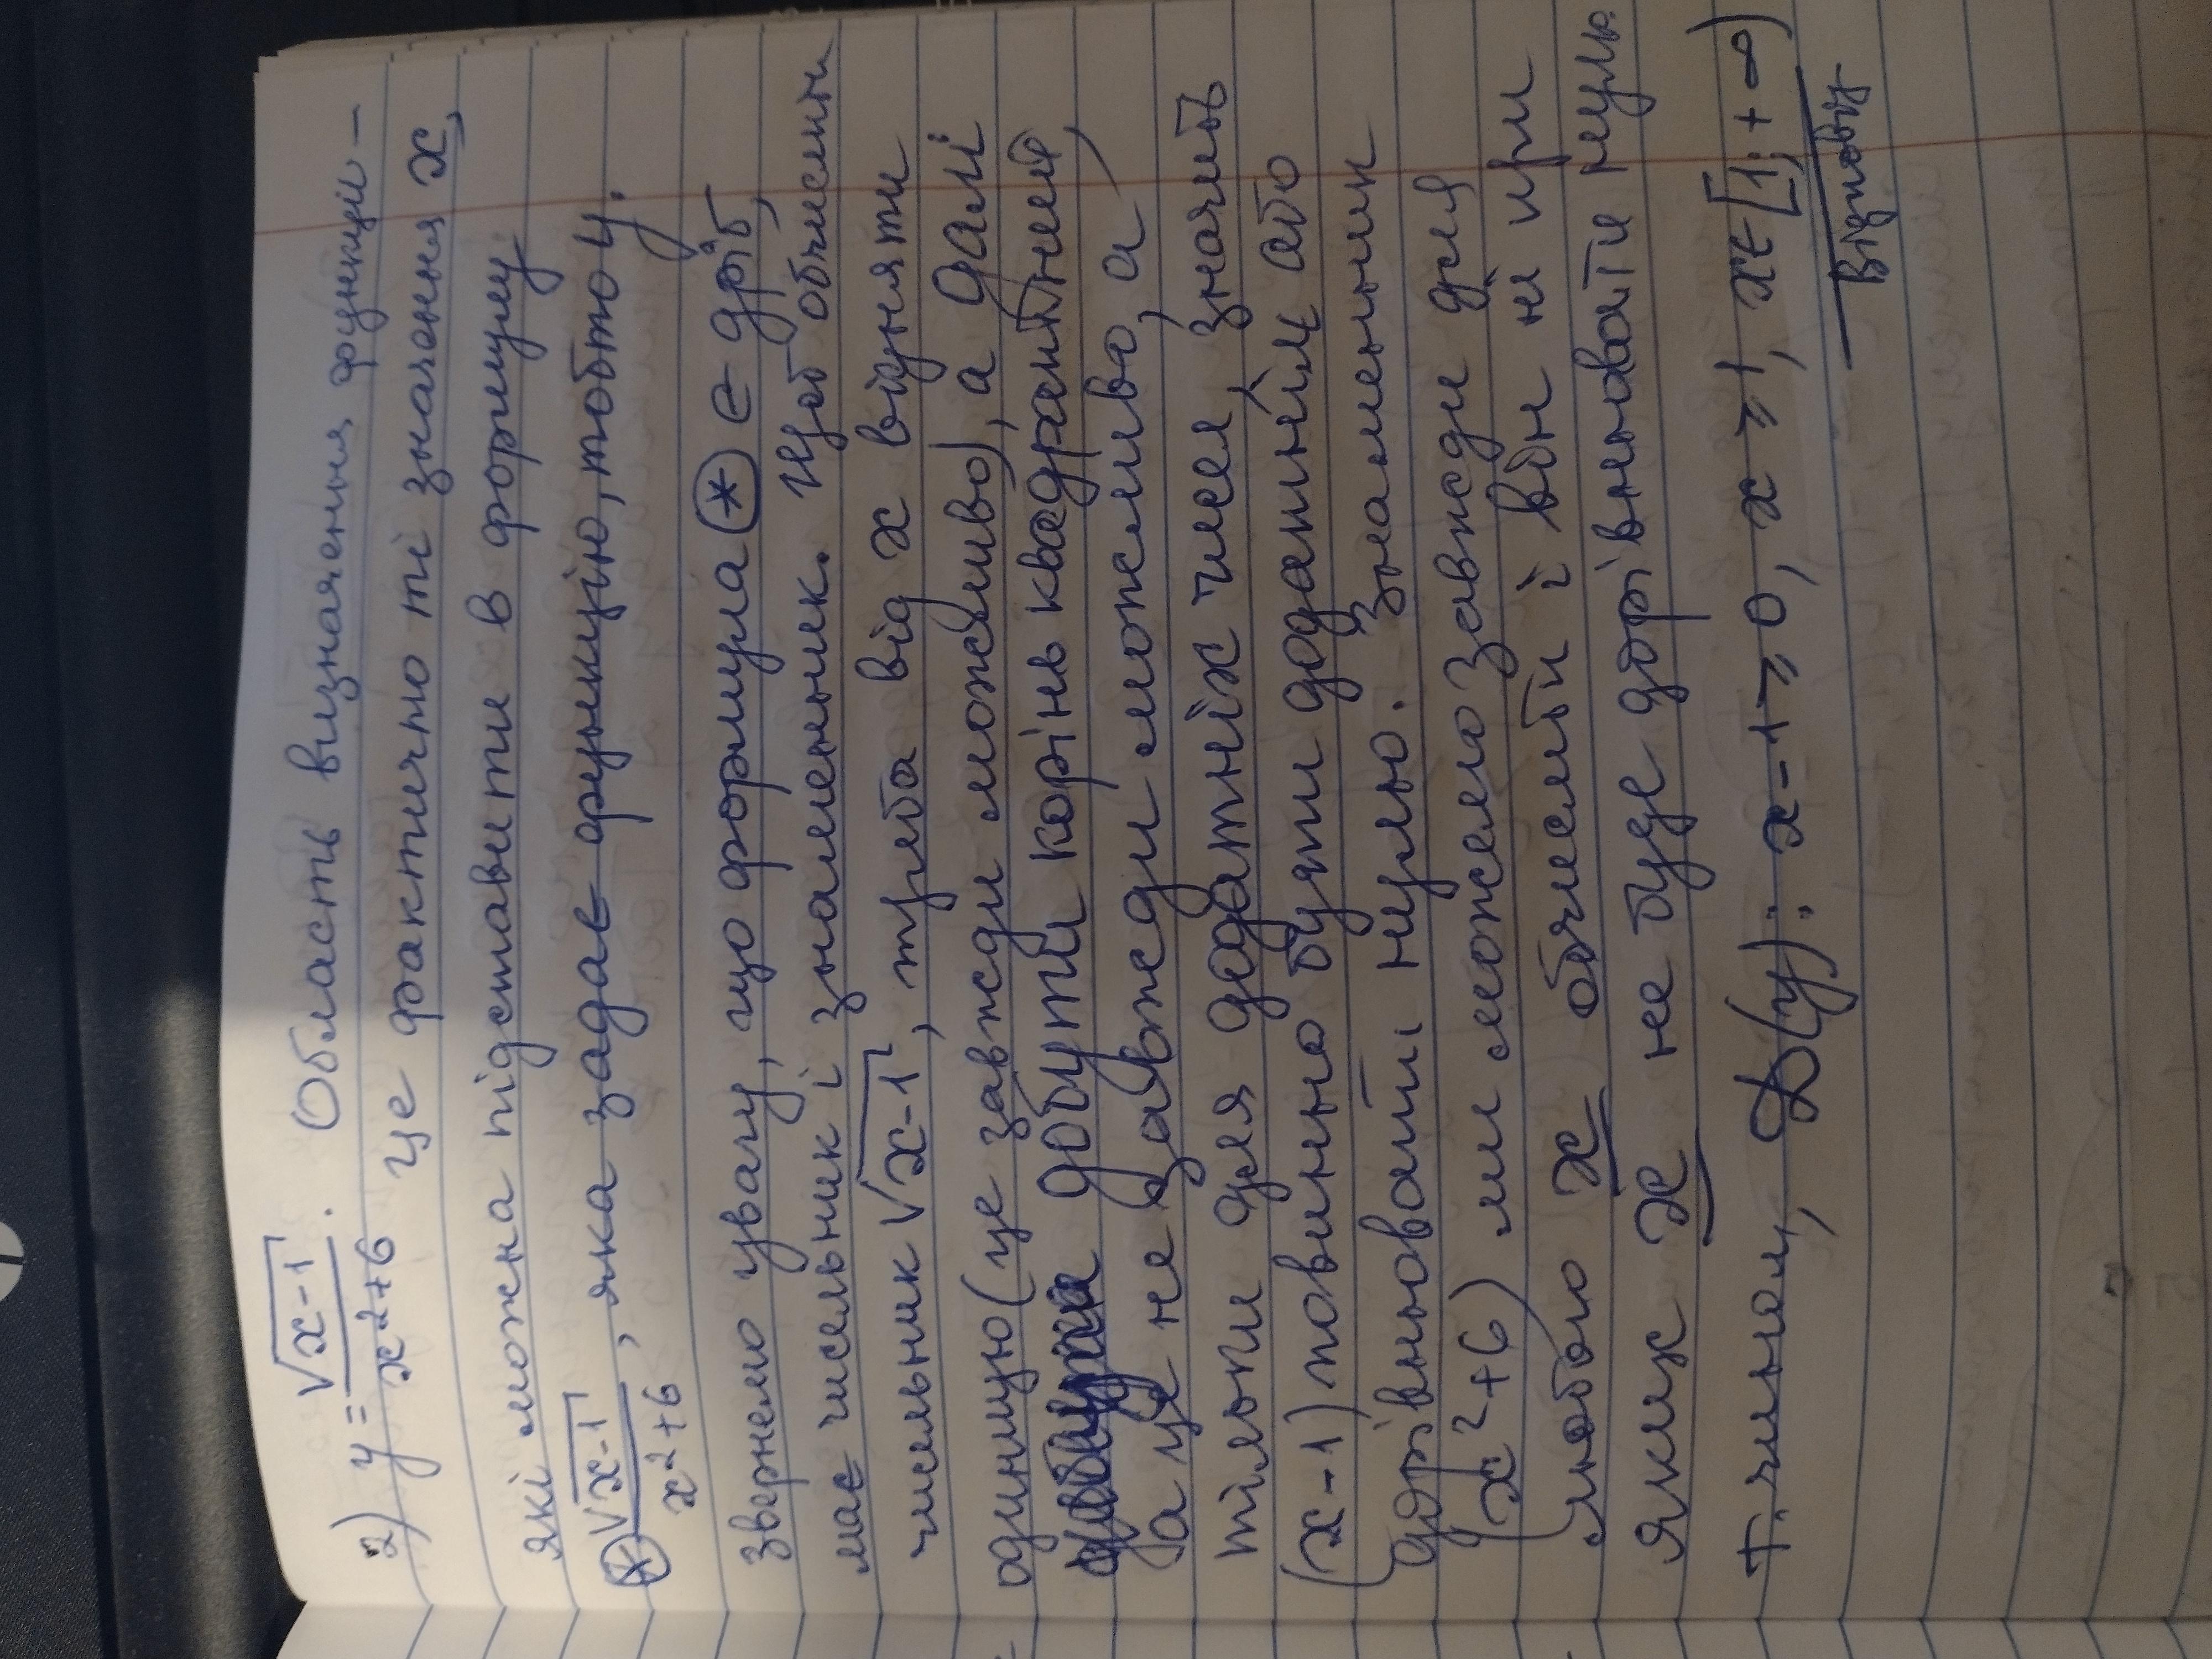 2) y = √(x-1) / (x²+6). Область визначення функції –
це фактично ті значення x,
які можна підставити в формулу
(*) √(x-1) / (x²+6), яка задає функцію, тобто y.
звернемо увагу, що формула (*) є дріб,
має чисельник і знаменник. Щоб обчислити
чисельник √(x-1), треба від x відняти
одиницю (це завжди можливо), а далі
добути корінь квадратний,
а це не завжди можливо, а
тільки для додатніх чисел, значить
(x-1) повинно бути додатнім або
дорівнювати нулю. Знаменник
(x²+6) ми можемо завжди для
любого x обчислити і він ні при
яких x не буде дорівнювати нулю.
т. чином, D(y): x-1 ≥ 0, x ≥ 1, x ∈ [1; +∞)
Відповідь